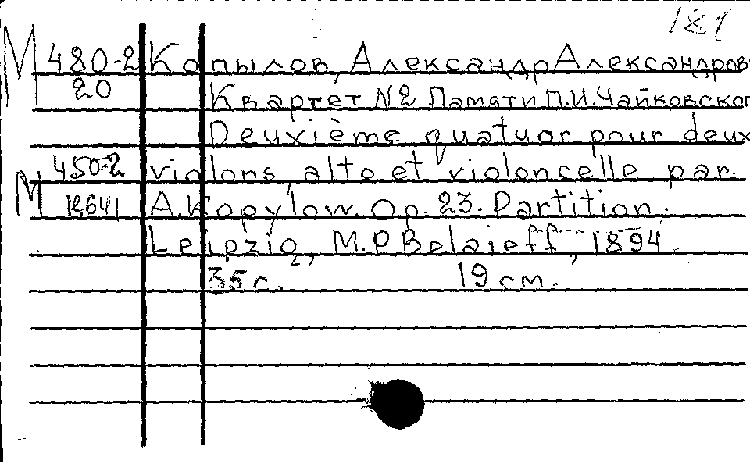 181
М 480-2 Копылов, Александр Александров
20 Квартет №2 Памяти П.И. Чайковског
Deuxième quatuor pour deux
М 450-2 violons, alto et violoncelle par
12641 A. Kopylow. Op. 23. Partition.
Leipzig, M.P. Belaieff, 1894.
35 с. 19 см.